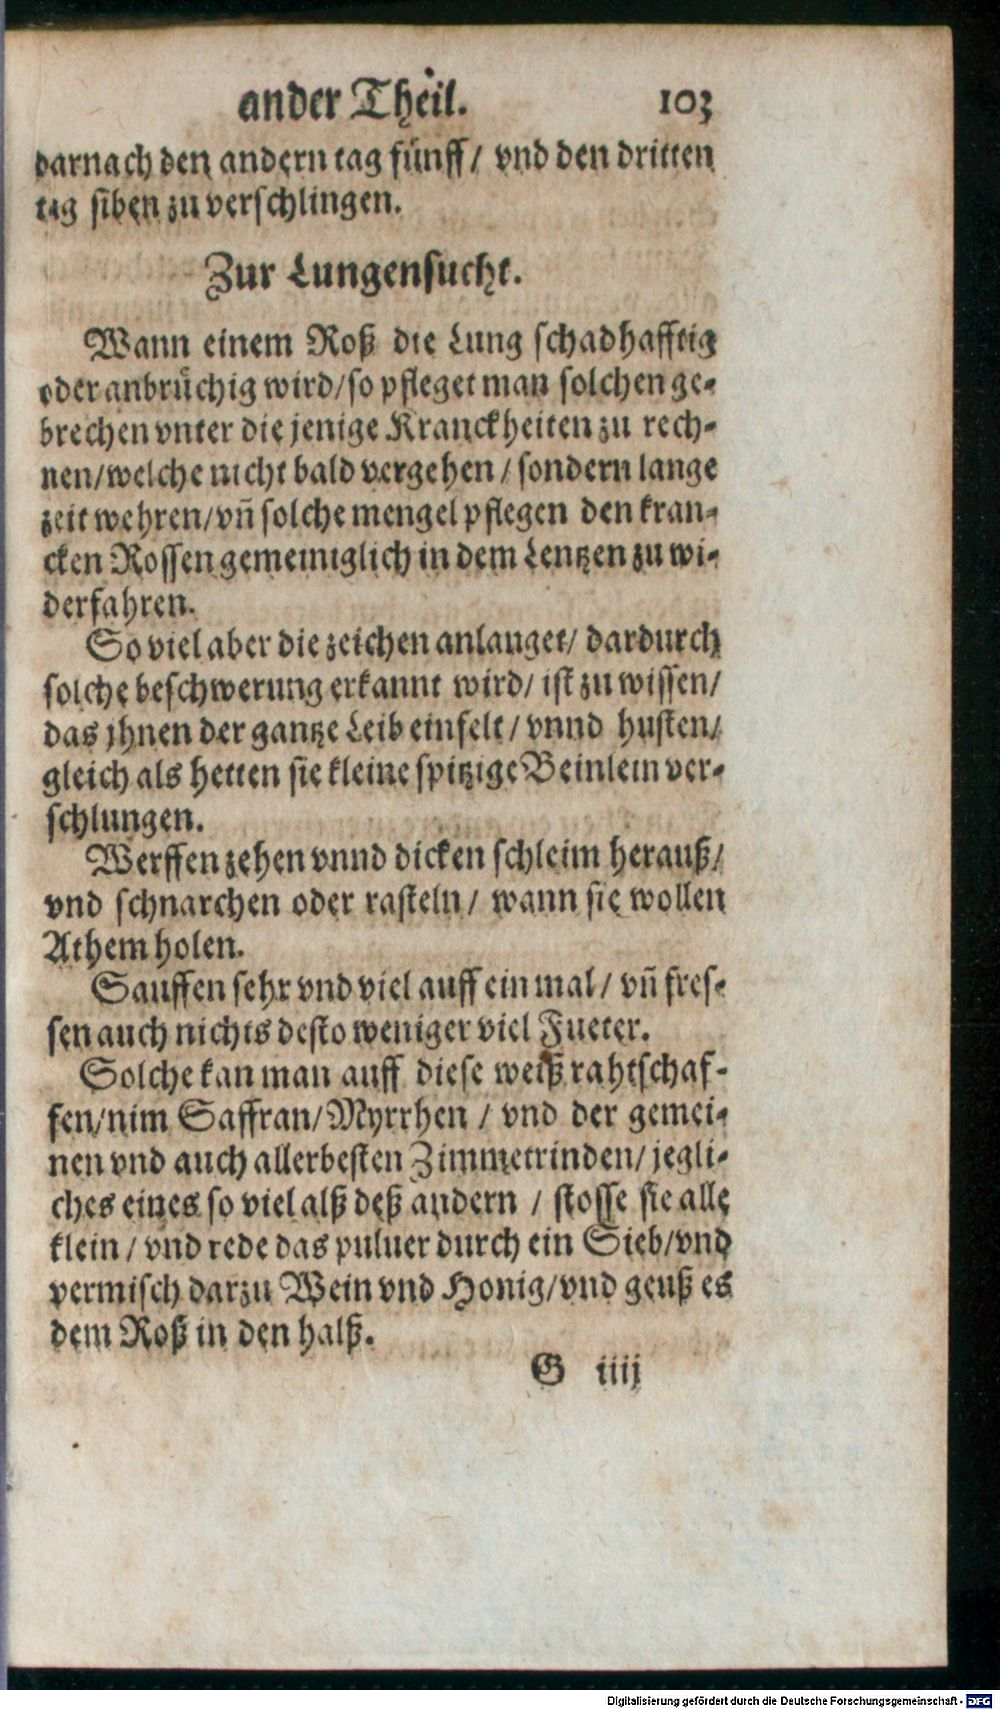 ander Theil. 103
darnach den andern tag fünff/ vnd den dritten
tag siben zu verschlingen.
Zur Lungensucht.
Wann einem Roß die Lung schadhafftig
oder anbrüchig wird/so pfleget man solchen ge-
brechen vnter die jenige Kranckheiten zu rech-
nen/welche nicht bald vergehen/ sondern lange
zeit wehren/vñ solche mengel pflegen den kran-
cken Rossen gemeiniglich in dem Lentzen zu wi-
derfahren.
So viel aber die zeichen anlanget/ dardurch
solche beschwerung erkannt wird/ ist zu wissen/
das jhnen der gantze Leib einfelt/ vnnd husten/
gleich als hetten sie kleine spitzige Beinlein ver-
schlungen.
Werffen zehen vnnd dicken schleim herauß/
vnd schnarchen oder rasteln/ wann sie wollen
Athem holen.
Sauffen sehr vnd viel auff ein mal/ vñ fres-
sen auch nichts desto weniger viel Fueter.
Solche kan man auff diese weiß rahtschaf-
fen/nim Saffran/Myrrhen / vnd der gemei-
nen vnd auch allerbesten Zimmetrinden/ jegli-
ches eines so viel alß deß andern / stosse sie alle
klein/ vnd rede das puluer durch ein Sieb/vnd
vermisch darzu Wein vnd Honig/vnd geuß es
dem Roß in den halß.
G iiij
Digitalisierung gefördert durch die Deutsche Forschungsgemeinschaft - DFG